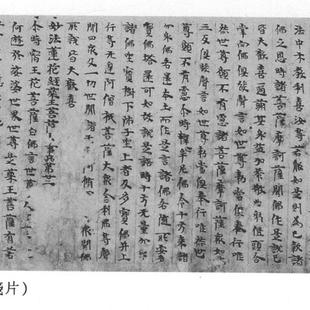 法中示教利喜汝等若能如是則為已報諸
佛之恩時諸菩薩摩訶薩聞佛作是說已
皆大歡喜遍滿其身益加恭敬曲躬低頭合
掌向佛俱發聲言如世尊勅當具奉行唯
然世尊願不有慮諸菩薩摩訶薩衆如是
三反俱發聲言如世尊勅當具奉行唯然世
尊願不有慮尒時釋迦牟尼佛令十方來諸
分身佛各還本土而作是言諸佛各隨所安多
寶佛塔還可如故說是語時十方无量分身
諸佛坐寶樹下師子座上者及多寶佛并上
行等无邊阿僧祇菩薩大衆舍利弗等聲
聞四衆及一切世間天人阿修羅等聞佛
所說皆大歡喜
妙法蓮花經藥王菩薩本事品第廿三
尒時宿王花菩薩白佛言世尊
何遊於娑婆世界世尊是藥王菩薩有若
片）